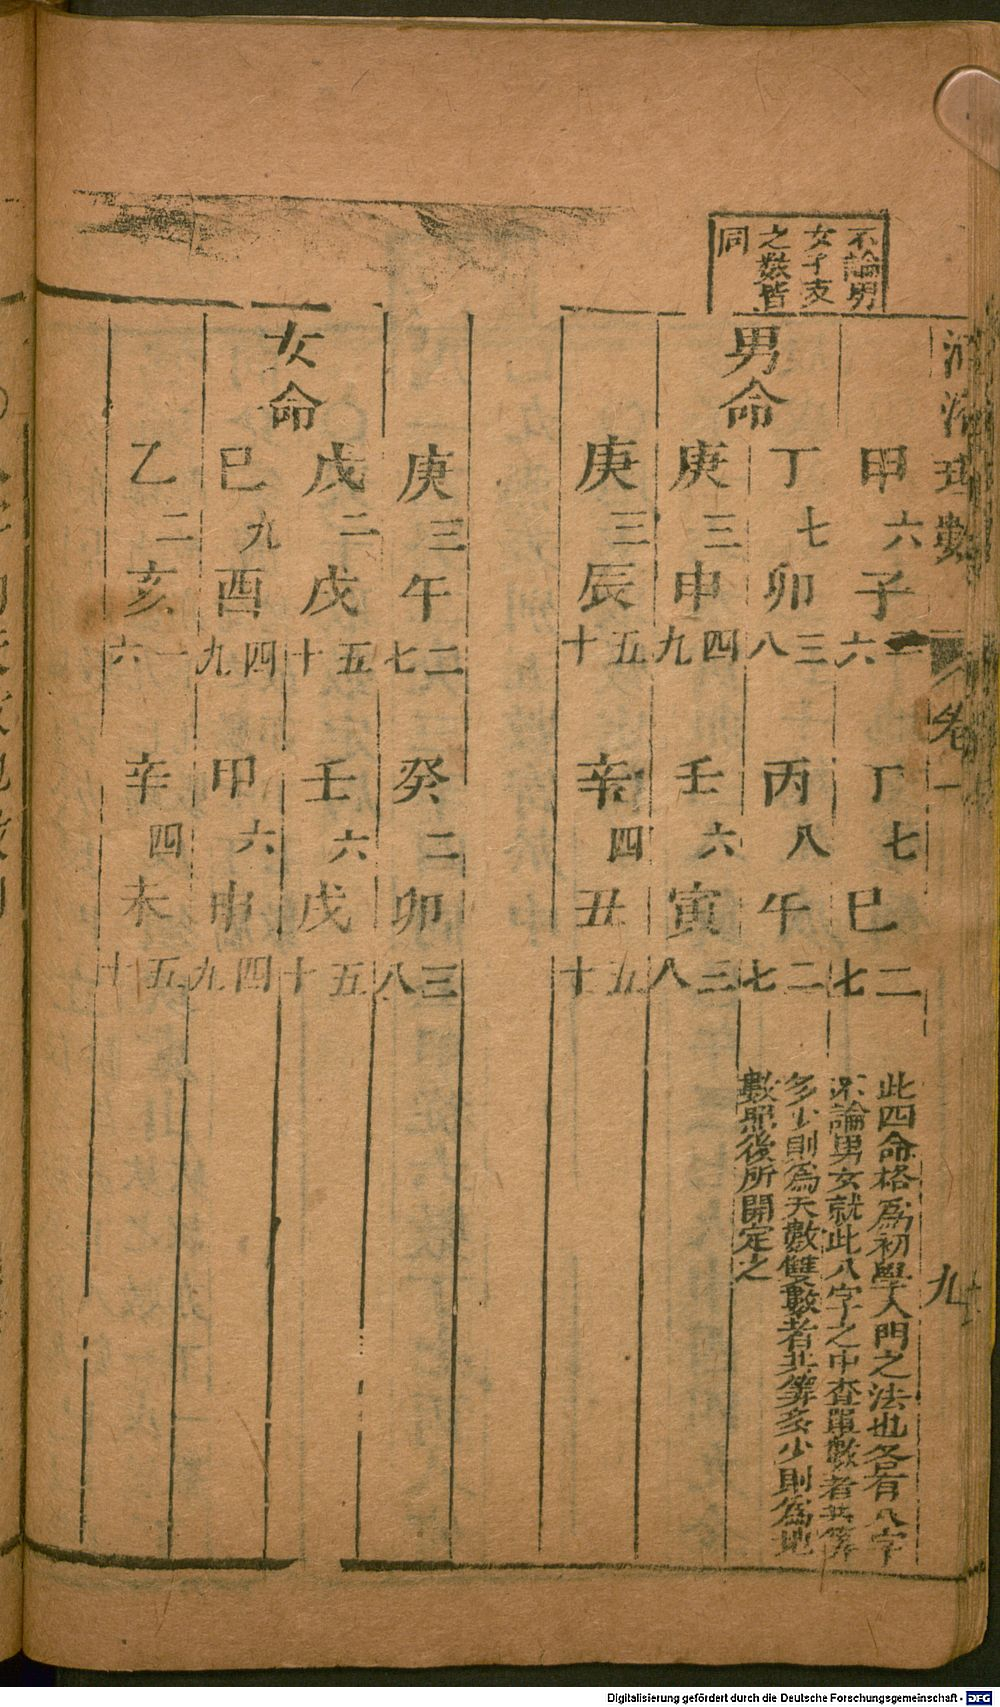 河洛理數
卷一
九
不論男
女干支
之數皆
同
男命
甲六子一六 丁七巳二七
丁七卯三八 丙八午二七
庚三申四九 壬六寅三八
庚三辰五十 辛四丑五十
此四命格爲初學入門之法也各有八字
不論男女就此八字之中查單數者共算
多少則爲天數雙數者共算多少則爲地
數照後所開定之
女命
庚三午二七 癸二卯三八
戊二戌五十 壬六戌五十
已九酉四九 甲六申四九
乙二亥一六 辛四未五十
Digitalisierung gefördert durch die Deutsche Forschungsgemeinschaft - DFG